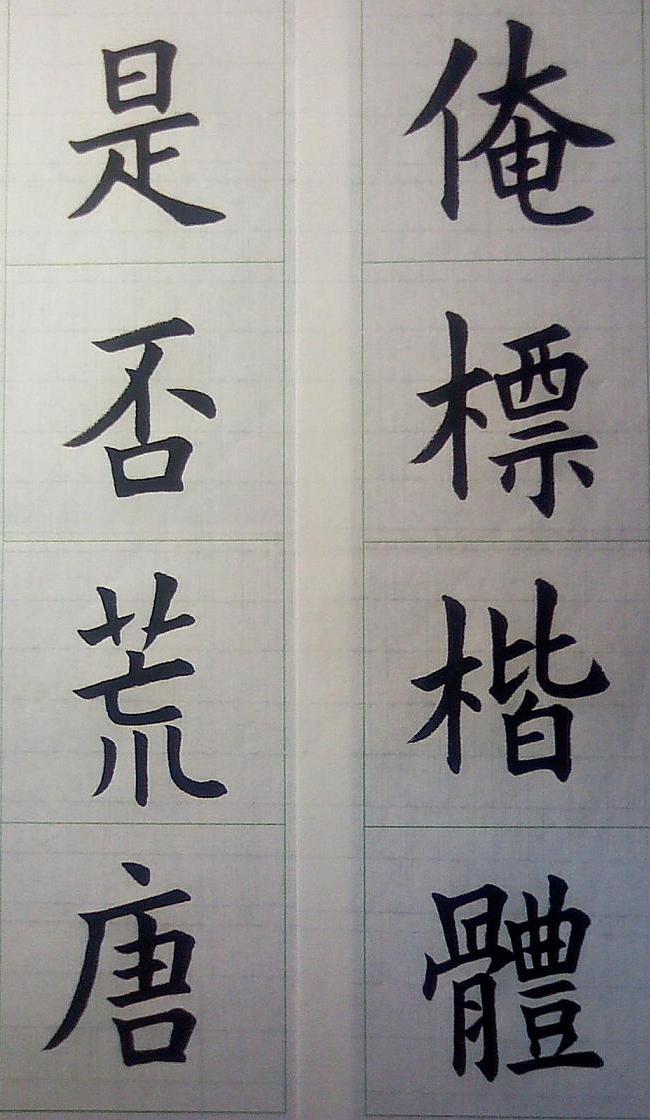 俺標楷體
是否荒唐